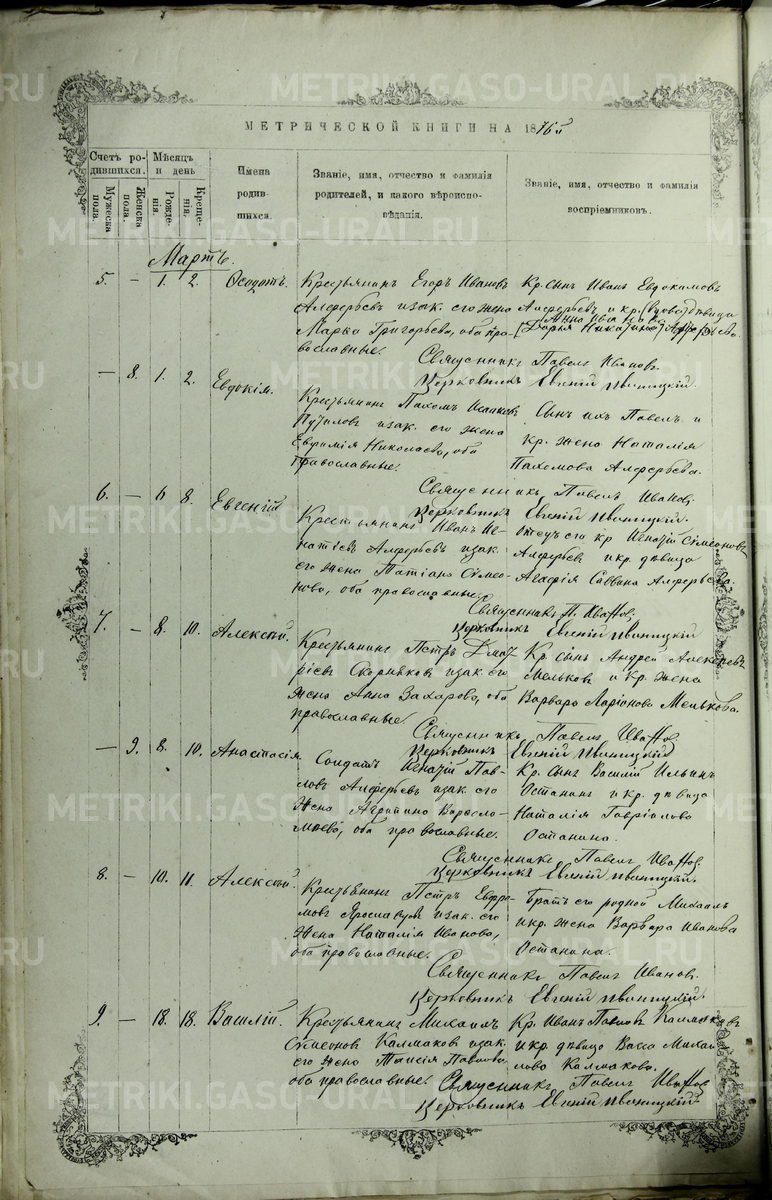 МЕТРИЧЕСКОЙ КНИГИ НА 1876 г.
Счетъ родившихся.
Мѣсяцъ и день
Имена родившихся.
Званіе, имя, отчество и фамилія родителей, и какого вѣроисповѣданія.
Званіе, имя, отчество и фамилія воспріемниковъ.
Мужеска пола.
Женска пола.
Рожденія.
Крещенія.
Мартъ.
5. — 1. 2. Ѳеодотъ. Крестьянинъ Егоръ Ивановъ Кр. сынъ Иванъ Евдокимовъ
Алферьевъ и зак. его жена Алферьевъ и кр. дѣвица
Марѳа Григорьева, оба пра-
вославные.
Священникъ Павелъ Ивановъ.
Церковникъ Евгеній Иваницкій.
— 8. 1. 2. Евдокія. Крестьянинъ Пахомъ Исааковъ Сынъ ихъ Павелъ и
Путиловъ и зак. его жена кр. жена Наталія
Евфимія Николаева, оба Пахомова Алферьева.
православные.
Священникъ Павелъ Ивановъ.
Церковникъ Евгеній Иваницкій.
6. — 6 8. Евгеній Крестьянинъ Иванъ Иг- отецъ его кр Игнатій Симеоновъ
натіевъ Алферьевъ и зак. Алферьевъ и кр. дѣвица
его жена Татіана Симео- Агафія Саввина Алферьева.
нова, оба православные.
Священникъ П. Ивановъ.
Церковникъ Евгеній Иваницкій
7. — 8. 10. Алексѣй. Крестьянинъ Петръ Дмит- Кр. сынъ Андрей Алексѣевъ
ріевъ Скорняковъ и зак. его Мельковъ и Кр. жена
жена Анна Захарова, оба Варвара Ларіонова Мелькова.
православные.
Священникъ Павелъ Ивановъ.
Церковникъ Евгеній Иваницкій
— 9. 8. 10. Анастасія. Солдатъ Игнатій Пав- Кр. сынъ Василій Ильинъ
ловъ Алферьевъ и зак. его Останинъ и кр. дѣвица
жена Агрипина Варѳоло- Наталія Гавріилова
меева, оба православные. Останина.
Священникъ Павелъ Ивановъ.
Церковникъ Евгеній Иваницкій.
8. — 10. 11. Алексѣй. Крестьянинъ Петръ Ефре- Братъ его родной Михаилъ
мовъ и зак. его и кр. жена Варвара Иванова
жена Наталія Иванова, Останина.
оба православные.
Священникъ Павелъ Ивановъ.
Церковникъ Евгеній Иваницкій.
9. — 18. 18. Василій. Крестьянинъ Михаилъ Кр. Иванъ Павловъ Калмаковъ
Симеоновъ Калмаковъ и зак. и кр. дѣвица Васса Михай-
его жена Таисія Павлова лова Калмакова.
оба православные.
Священникъ Павелъ Ивановъ
Церковникъ Евгеній Иваницкій
METRIKI.GASO-URAL.RU